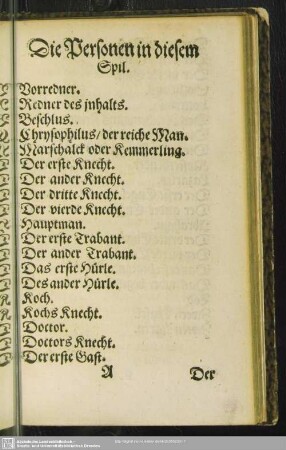 Die Personen in diesem
Spil.
Vorredner.
Redner des jnhalts.
Beschlus.
Chrysophilus/ der reiche Man.
Marschalck oder Kemmerling.
Der erste Knecht.
Der ander Knecht.
Der dritte Knecht.
Der vierde Knecht.
Hauptman.
Der erste Trabant.
Der ander Trabant.
Das erste Hürle.
Des ander Hürle.
Koch.
Kochs Knecht.
Doctor.
Doctors Knecht.
Der erste Gast.
A Der